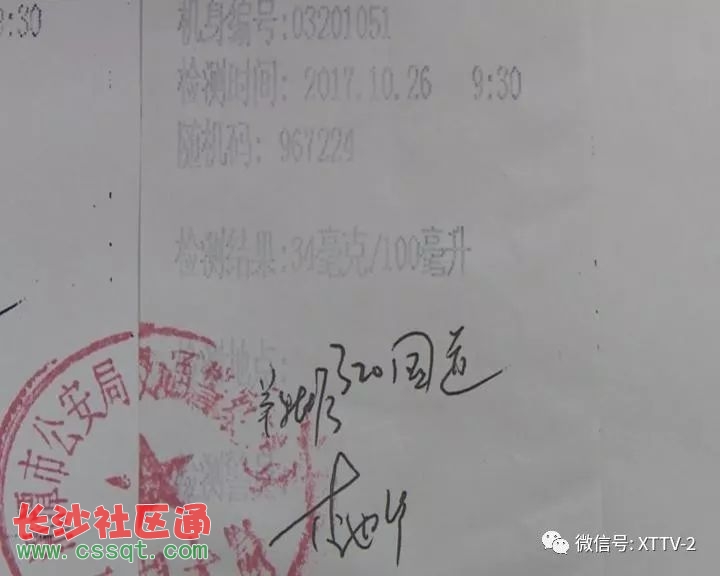 9:30
机身编号:03201051
检测时间: 2017.10.26 9:30
随机码: 967224
检测结果:34毫克/100毫升
检测地点:
320国道
市公安局交通警
长沙社区通
www.cssqt.com
微信号: XTTV-2